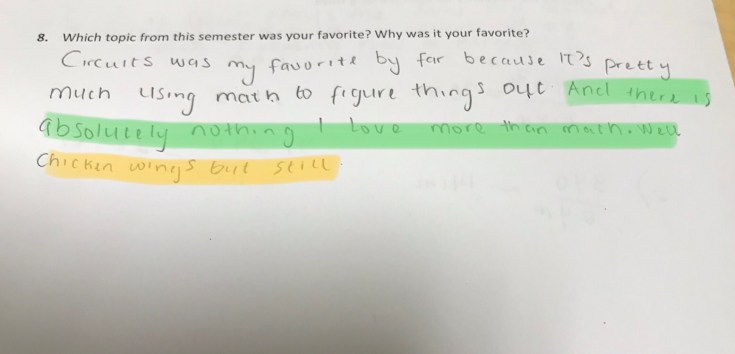 8. Which topic from this semester was your favorite? Why was it your favorite?
Circuits was my favorite by far because it's pretty
much using math to figure things out. And there is
absolutely nothing I love more than math. Well
Chicken wings but still.